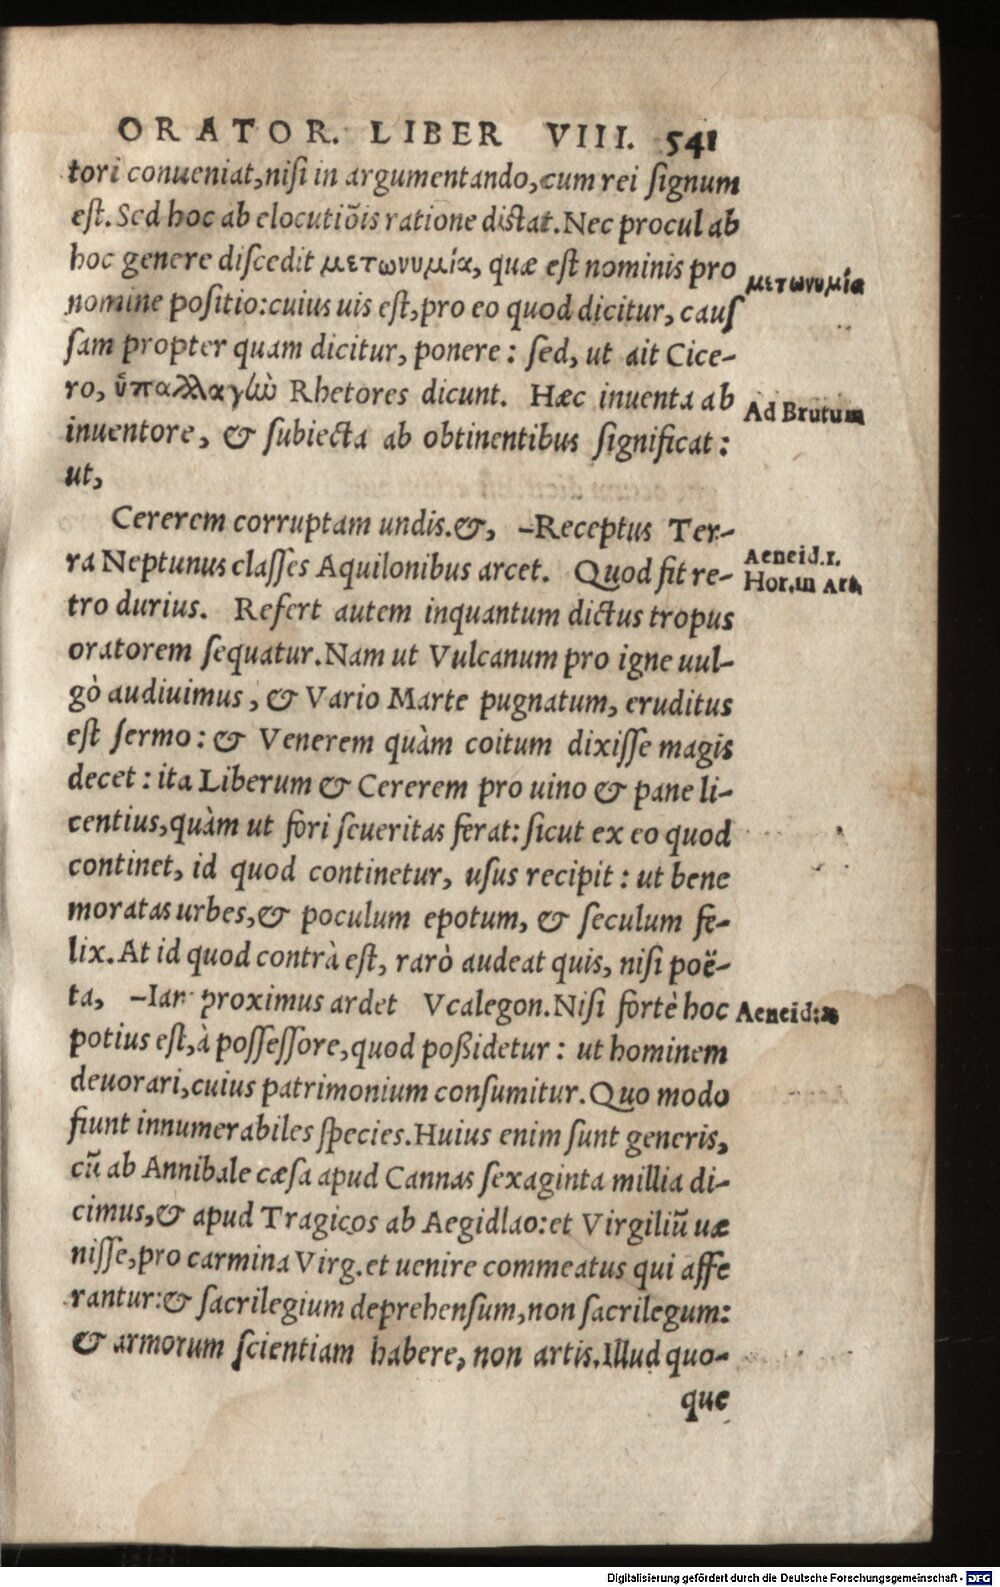 ORATOR. LIBER VIII. 541
tori conueniat, nisi in argumentando, cum rei signum
est. Sed hoc ab elocutiõis ratione distat. Nec procul ab
hoc genere discedit μετωνυμία, quæ est nominis pro
μετωνυμία
nomine positio: cuius uis est, pro eo quod dicitur, caus
sam propter quam dicitur, ponere: sed, ut ait Cice-
ro, ὑπαλλαγὴν Rhetores dicunt. Hæc inuenta ab
Ad Brutum
inuentore, & subiecta ab obtinentibus significat:
ut,
Cererem corruptam undis. &, -Receptus Ter-
Aeneid.1.
ra Neptunus classes Aquilonibus arcet. Quod fit re-
Hor. in Art.
tro durius. Refert autem inquantum dictus tropus
oratorem sequatur. Nam ut Vulcanum pro igne uul-
gò audiuimus, & Vario Marte pugnatum, eruditus
est sermo: & Venerem quàm coitum dixisse magis
decet: ita Liberum & Cererem pro uino & pane li-
centius, quàm ut fori seueritas ferat: sicut ex eo quod
continet, id quod continetur, usus recipit: ut bene
moratas urbes, & poculum epotum, & seculum fe-
lix. At id quod contrà est, rarò audeat quis, nisi poë-
ta, -Iam proximus ardet Vcalegon. Nisi fortè hoc
Aeneid: 2
potius est, à possessore, quod poßidetur: ut hominem
deuorari, cuius patrimonium consumitur. Quo modo
fiunt innumerabiles species. Huius enim sunt generis,
cũ ab Annibale cæsa apud Cannas sexaginta millia di-
cimus, & apud Tragicos ab Aegidlao: et Virgiliũ uæ
nisse, pro carmina Virg. et uenire commeatus qui affe
rantur: & sacrilegium deprehensum, non sacrilegum:
& armorum scientiam habere, non artis. Illud quo-
que
Digitalisierung gefördert durch die Deutsche Forschungsgemeinschaft - DFG